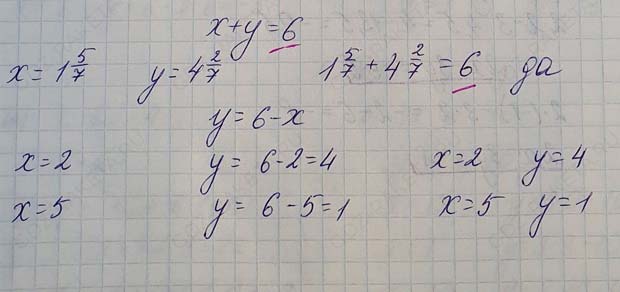 x+y=6
x=1 5/7 y=4 2/7 1 5/7 + 4 2/7 = 6 да
y=6-x
x=2 y= 6-2=4 x=2 y=4
x=5 y= 6-5=1 x=5 y=1